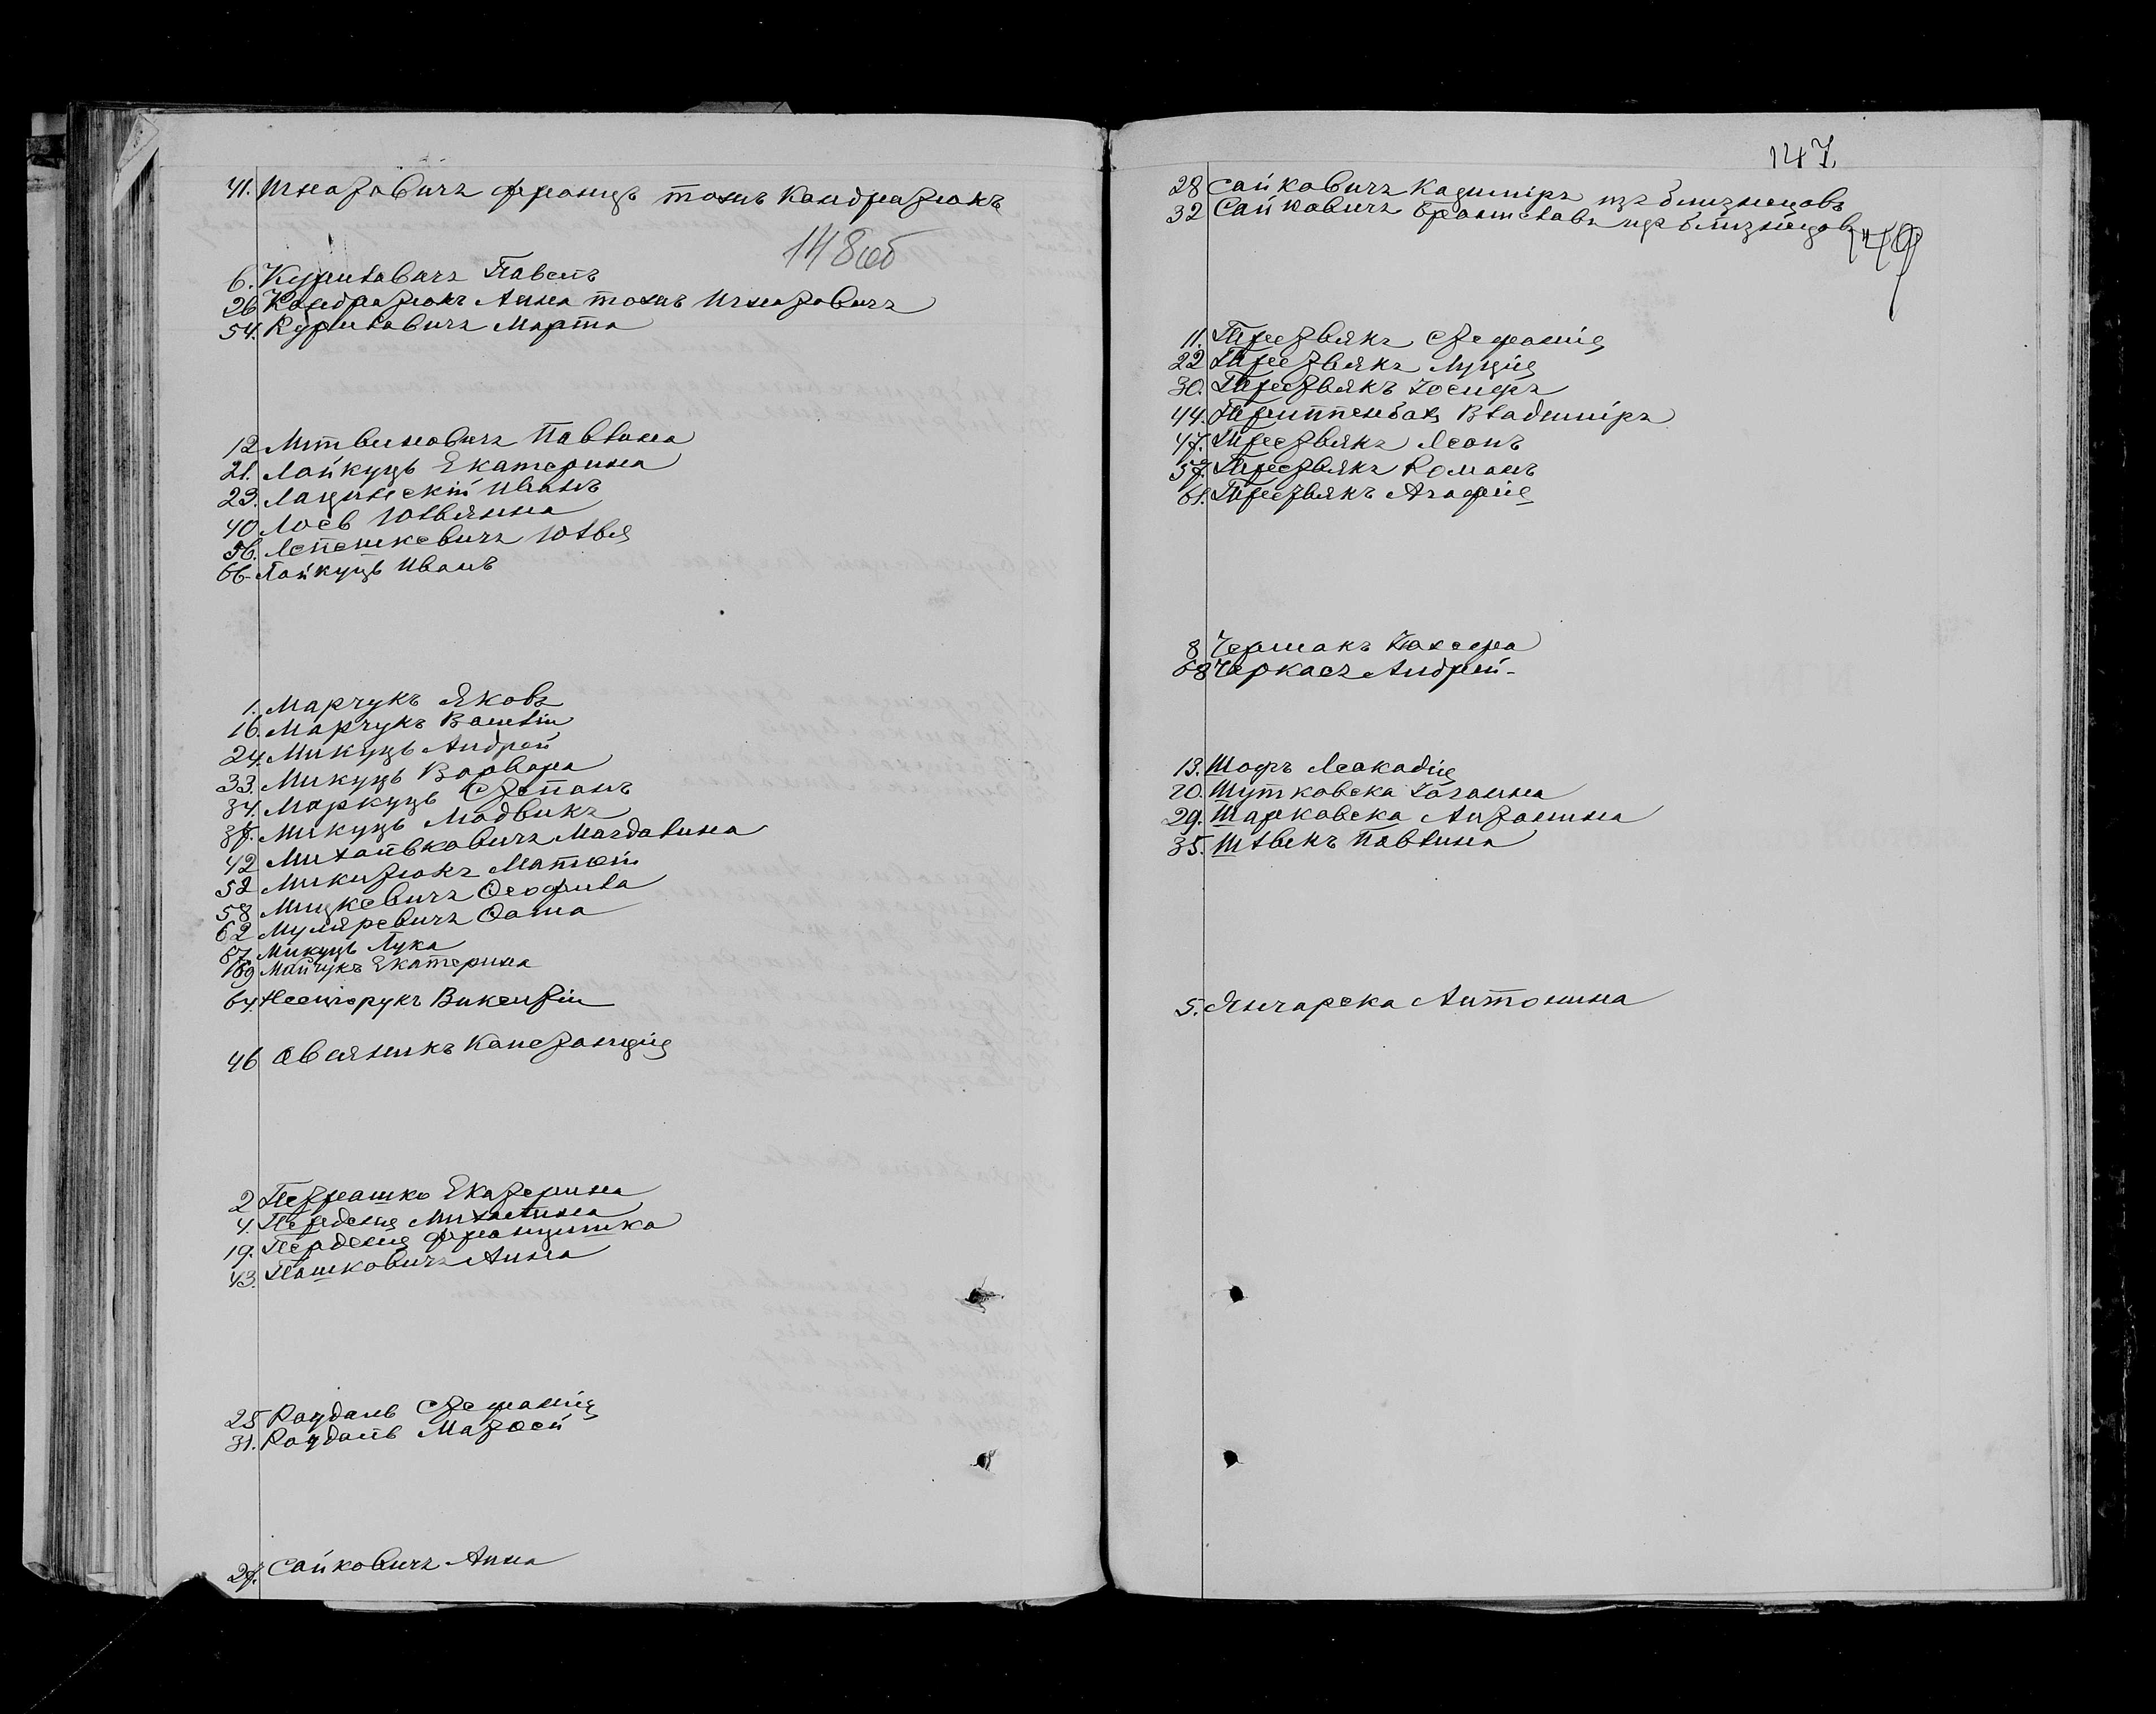 41. Игнатовичъ Францъ тожъ Кондратюкъ
148об
6. Куриловичъ Павелъ
26 Кондратюкъ Анна тожъ Игнатовичъ
54. Куриловичъ Марта
12 Литвиновичъ Павлина
21. Лайкуць Екатерина
23. Лащинскій Иванъ
40 Лось Юльянна
56. Лепешкевичъ Юлья
66. Лайкуць Иванъ
1. Марчукъ Яковъ
16. Марчукъ Василій
24. Микуць Андрей
33. Микуць Варвара
34. Маркуць Степанъ
37. Микуць Людвикъ
42 Михальковичъ Магдалина
52 Микитюкъ Матвѣй
58 Мицкевичъ Ѳеофила
62 Муляревичъ Ѳома
67. Микуць Лука
69 Майчукъ Екатерина
64. Несторукъ Викентій
46 Овсяникъ Констанція
2 Петрашко Екатерина
4. Перденя Михалина
19. Перденя Францишка
43. Пашковичъ Анна
25 Раздаль Стефанія
31. Раздаль Матвей
27. Сайковичъ Анна
147.
28 Сайковичъ Казиміръ изъ близнецовъ
32 Сайковичъ Брониславъ изъ близнецовъ
11. Третьякъ Стефанія
22 Третьякъ Луція
30. Третьякъ Іосифъ
44. Триппенбах Владиміръ
47. Третьякъ Леонъ
57. Третьякъ Романъ
61. Третьякъ Агафія
8 Чермакъ
68 Черкасъ Андрей
13. Шафъ Леокадія
20. Шутковска Іоганна
29. Шарковска Антонина
35. Павлина
5. Янчарска Антонина